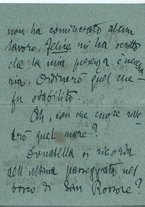 non ha cominciato alcun
lavoro. Felice mi ha scritto
che la mia presenza è neces-
saria. Ordinerò quel che
fu stabilito.
Oh, con che cuore rive-
drò quel mare?
Donatella si ricorda
dell'ultima passeggiata nel
bosco di San Rossore?